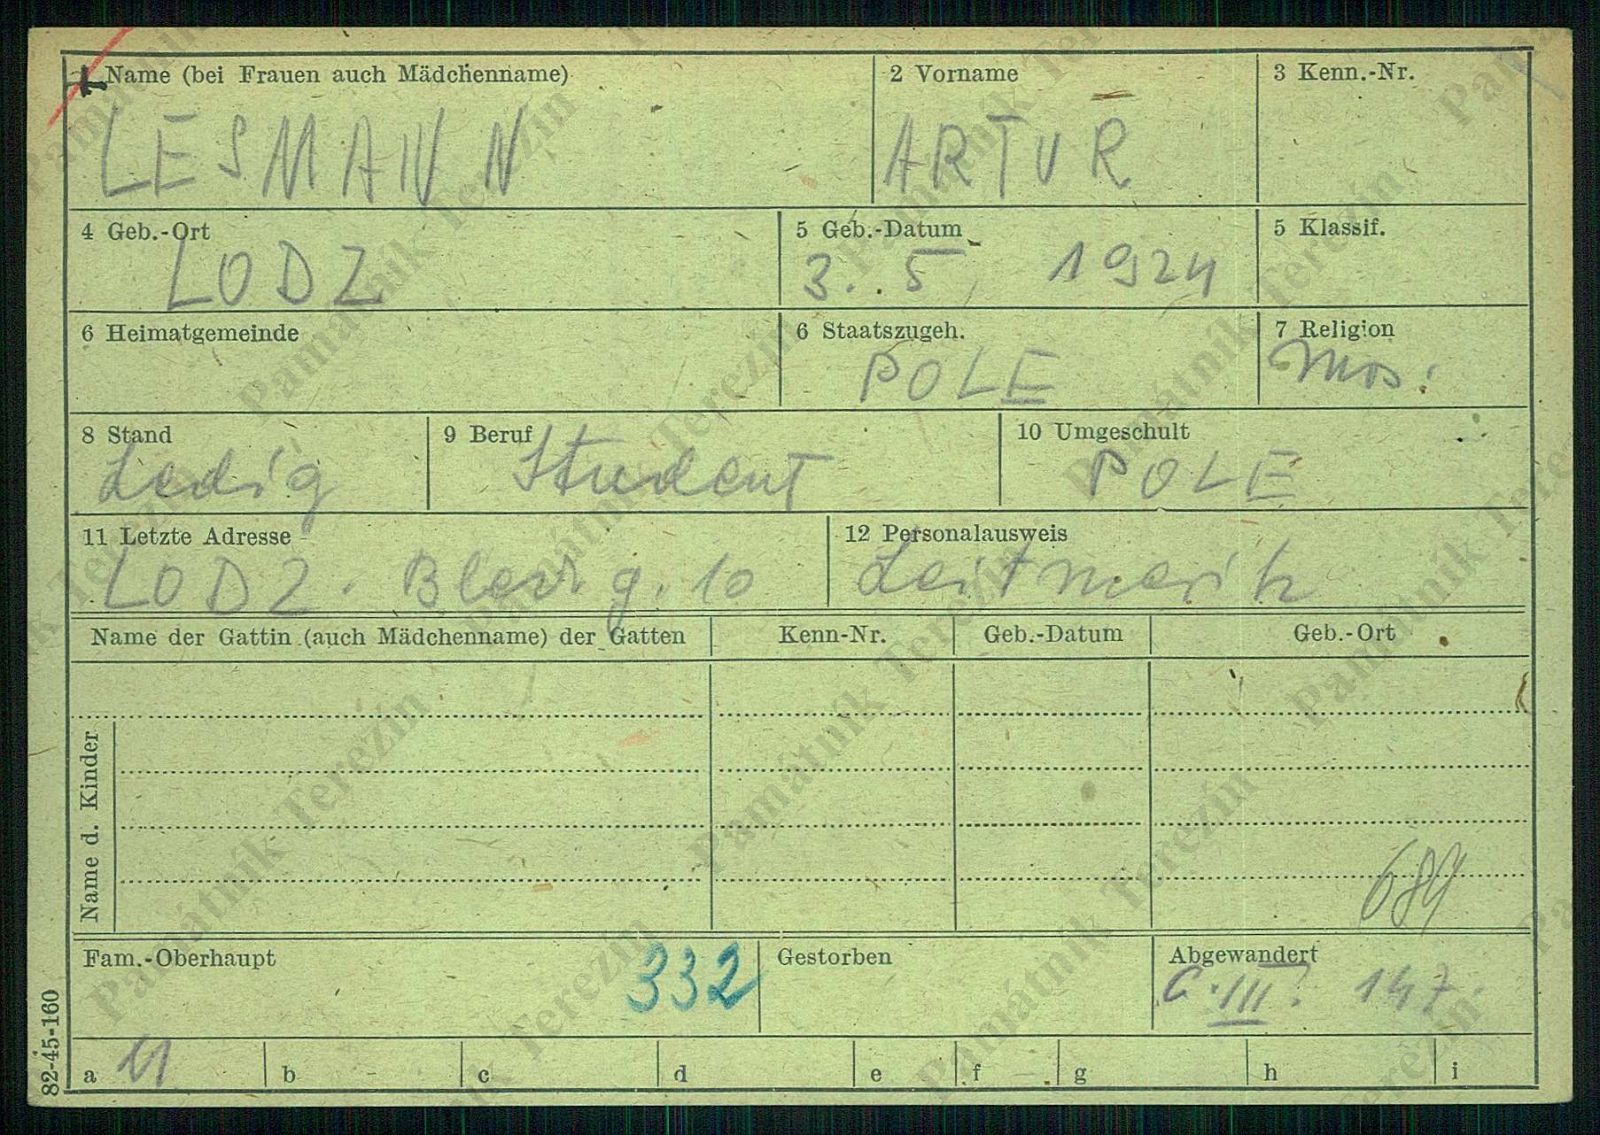 1 Name (bei Frauen auch Mädchenname) 2 Vorname 3 Kenn.-Nr.
LESMANN ARTUR
4 Geb.-Ort 5 Geb.-Datum 5 Klassif.
LODZ 3. 5 1924
6 Heimatgemeinde 6 Staatszugeh. 7 Religion
POLE Mos.
8 Stand 9 Beruf 10 Umgeschult
Ledig Student POLE
11 Letzte Adresse 12 Personalausweis
LODZ. g. 10 Leitmeritz
Name der Gattin (auch Mädchenname) der Gatten Kenn-Nr. Geb.-Datum Geb.-Ort
Name d. Kinder
Fam.-Oberhaupt 332 Gestorben Abgewandert
C. III. 147.
a b c d e f g h i
82-45-160
Památník Terezín